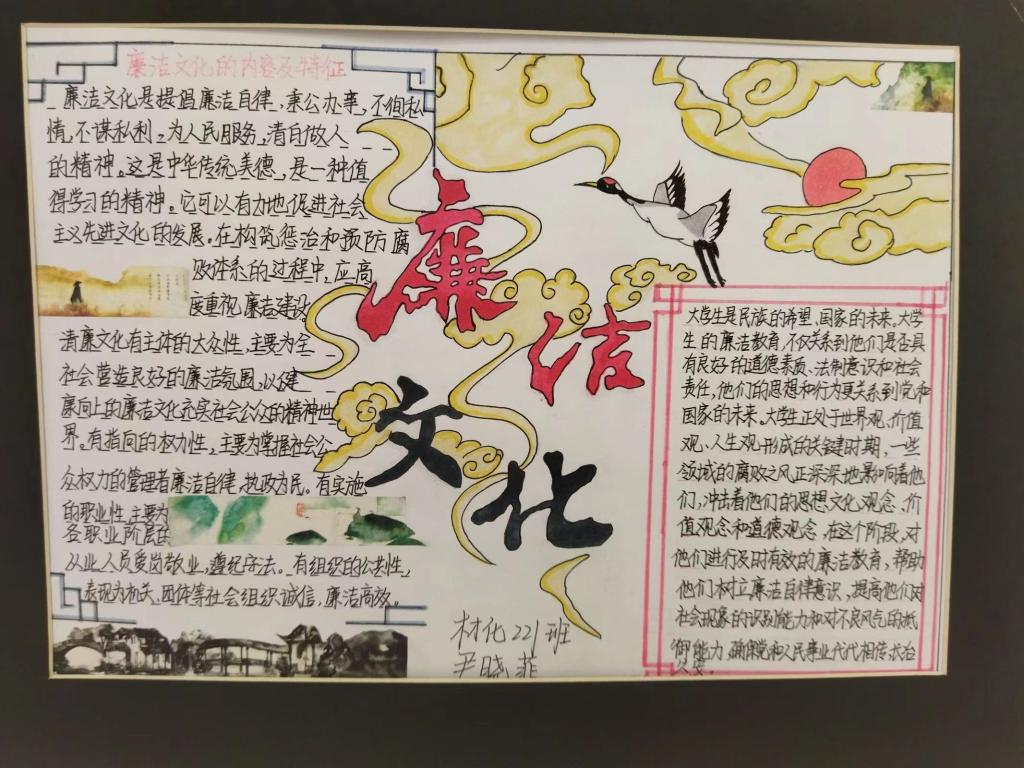 廉洁文化的内容及特征
廉洁文化是提倡廉洁自律,秉公办事,不徇私
情,不谋私利,为人民服务,清白做人
的精神。这是中华传统美德,是一种值
得学习的精神。它可以有力地促进社会
主义先进文化的发展。在构筑惩治和预防腐
败体系的过程中,应高
度重视廉洁建设
清廉文化有主体的大众性,主要为全
社会营造良好的廉洁氛围,以健
廉向上的廉洁文化充实社会公众的精神世
界。有指向的权力性。主要为掌握社会公
众权力的管理者廉洁自律,执政为民。有实施
的职业性,主要为
各职业阶层的
从业人员爱岗敬业,遵纪守法。有组织的公共性,
表现为机关、团体等社会组织诚信,廉洁高效。
廉
洁
文
化
大学生是民族的希望,国家的未来。大学
生的廉洁教育,不仅关系到他们是否具
有良好的道德素质、法制意识和社会
责任,他们的思想和行为更关系到党和
国家的未来。大学生正处于世界观、价值
观、人生观形成的关键时期,一些
领域的腐败之风正深深地影响着他
们,冲击着他们的思想文化观念、价
值观念和道德观念,在这个阶段,对
他们进行及时有效的廉洁教育,帮助
他们树立廉洁自律意识,提高他们对
社会现象的识别能力和对不良风气的抵
御能力,确保党和人民事业代代相传、长治
久安。
材化221班
尹晓菲